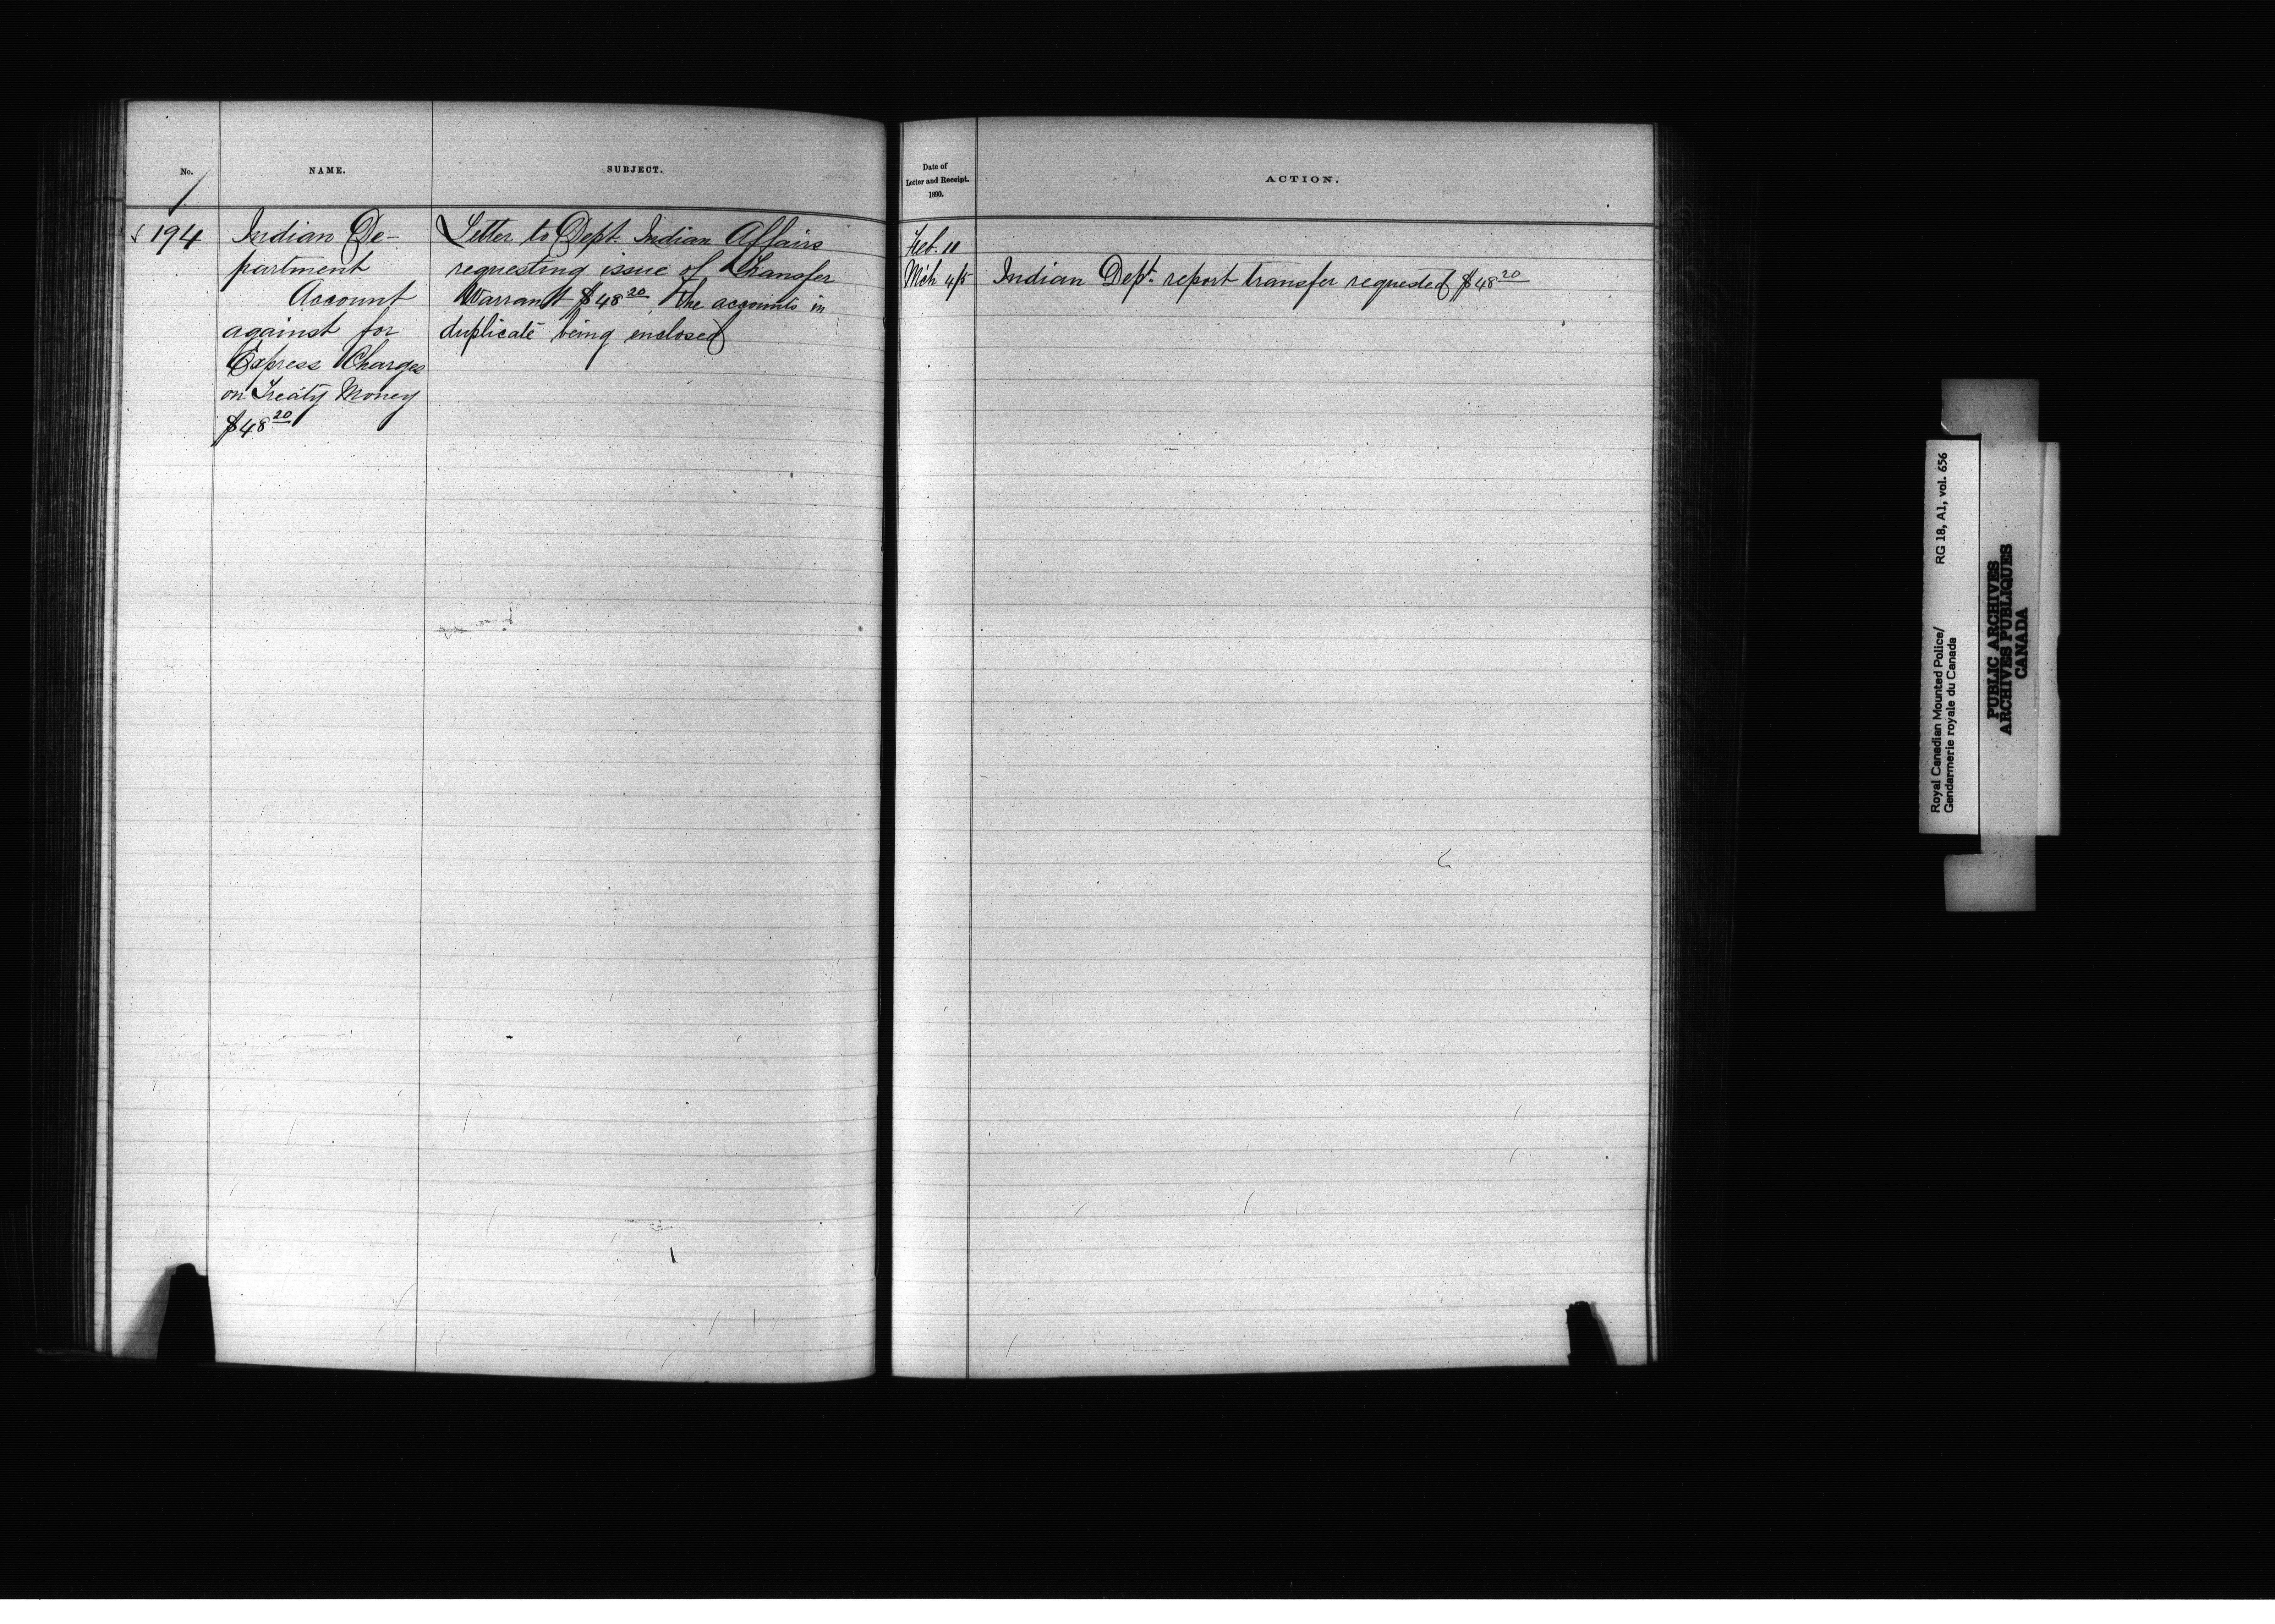 No.
NAME.
SUBJECT.
194
Indian De-
partment
Account
against for
Express Charges
on Treaty Money
$48 20
Letter to Dept. Indian Affairs
requesting issue of Transfer
Warrant $48 20, the accounts in
duplicate being enclosed
Date of
Letter and Receipt.
1890.
ACTION.
Feb. 11
Mch 4/5 Indian Dept. report transfer requested $48 20
Royal Canadian Mounted Police/ RG 18, A1, vol. 656
Gendarmerie royale du Canada
PUBLIC ARCHIVES
ARCHIVES PUBLIQUES
CANADA